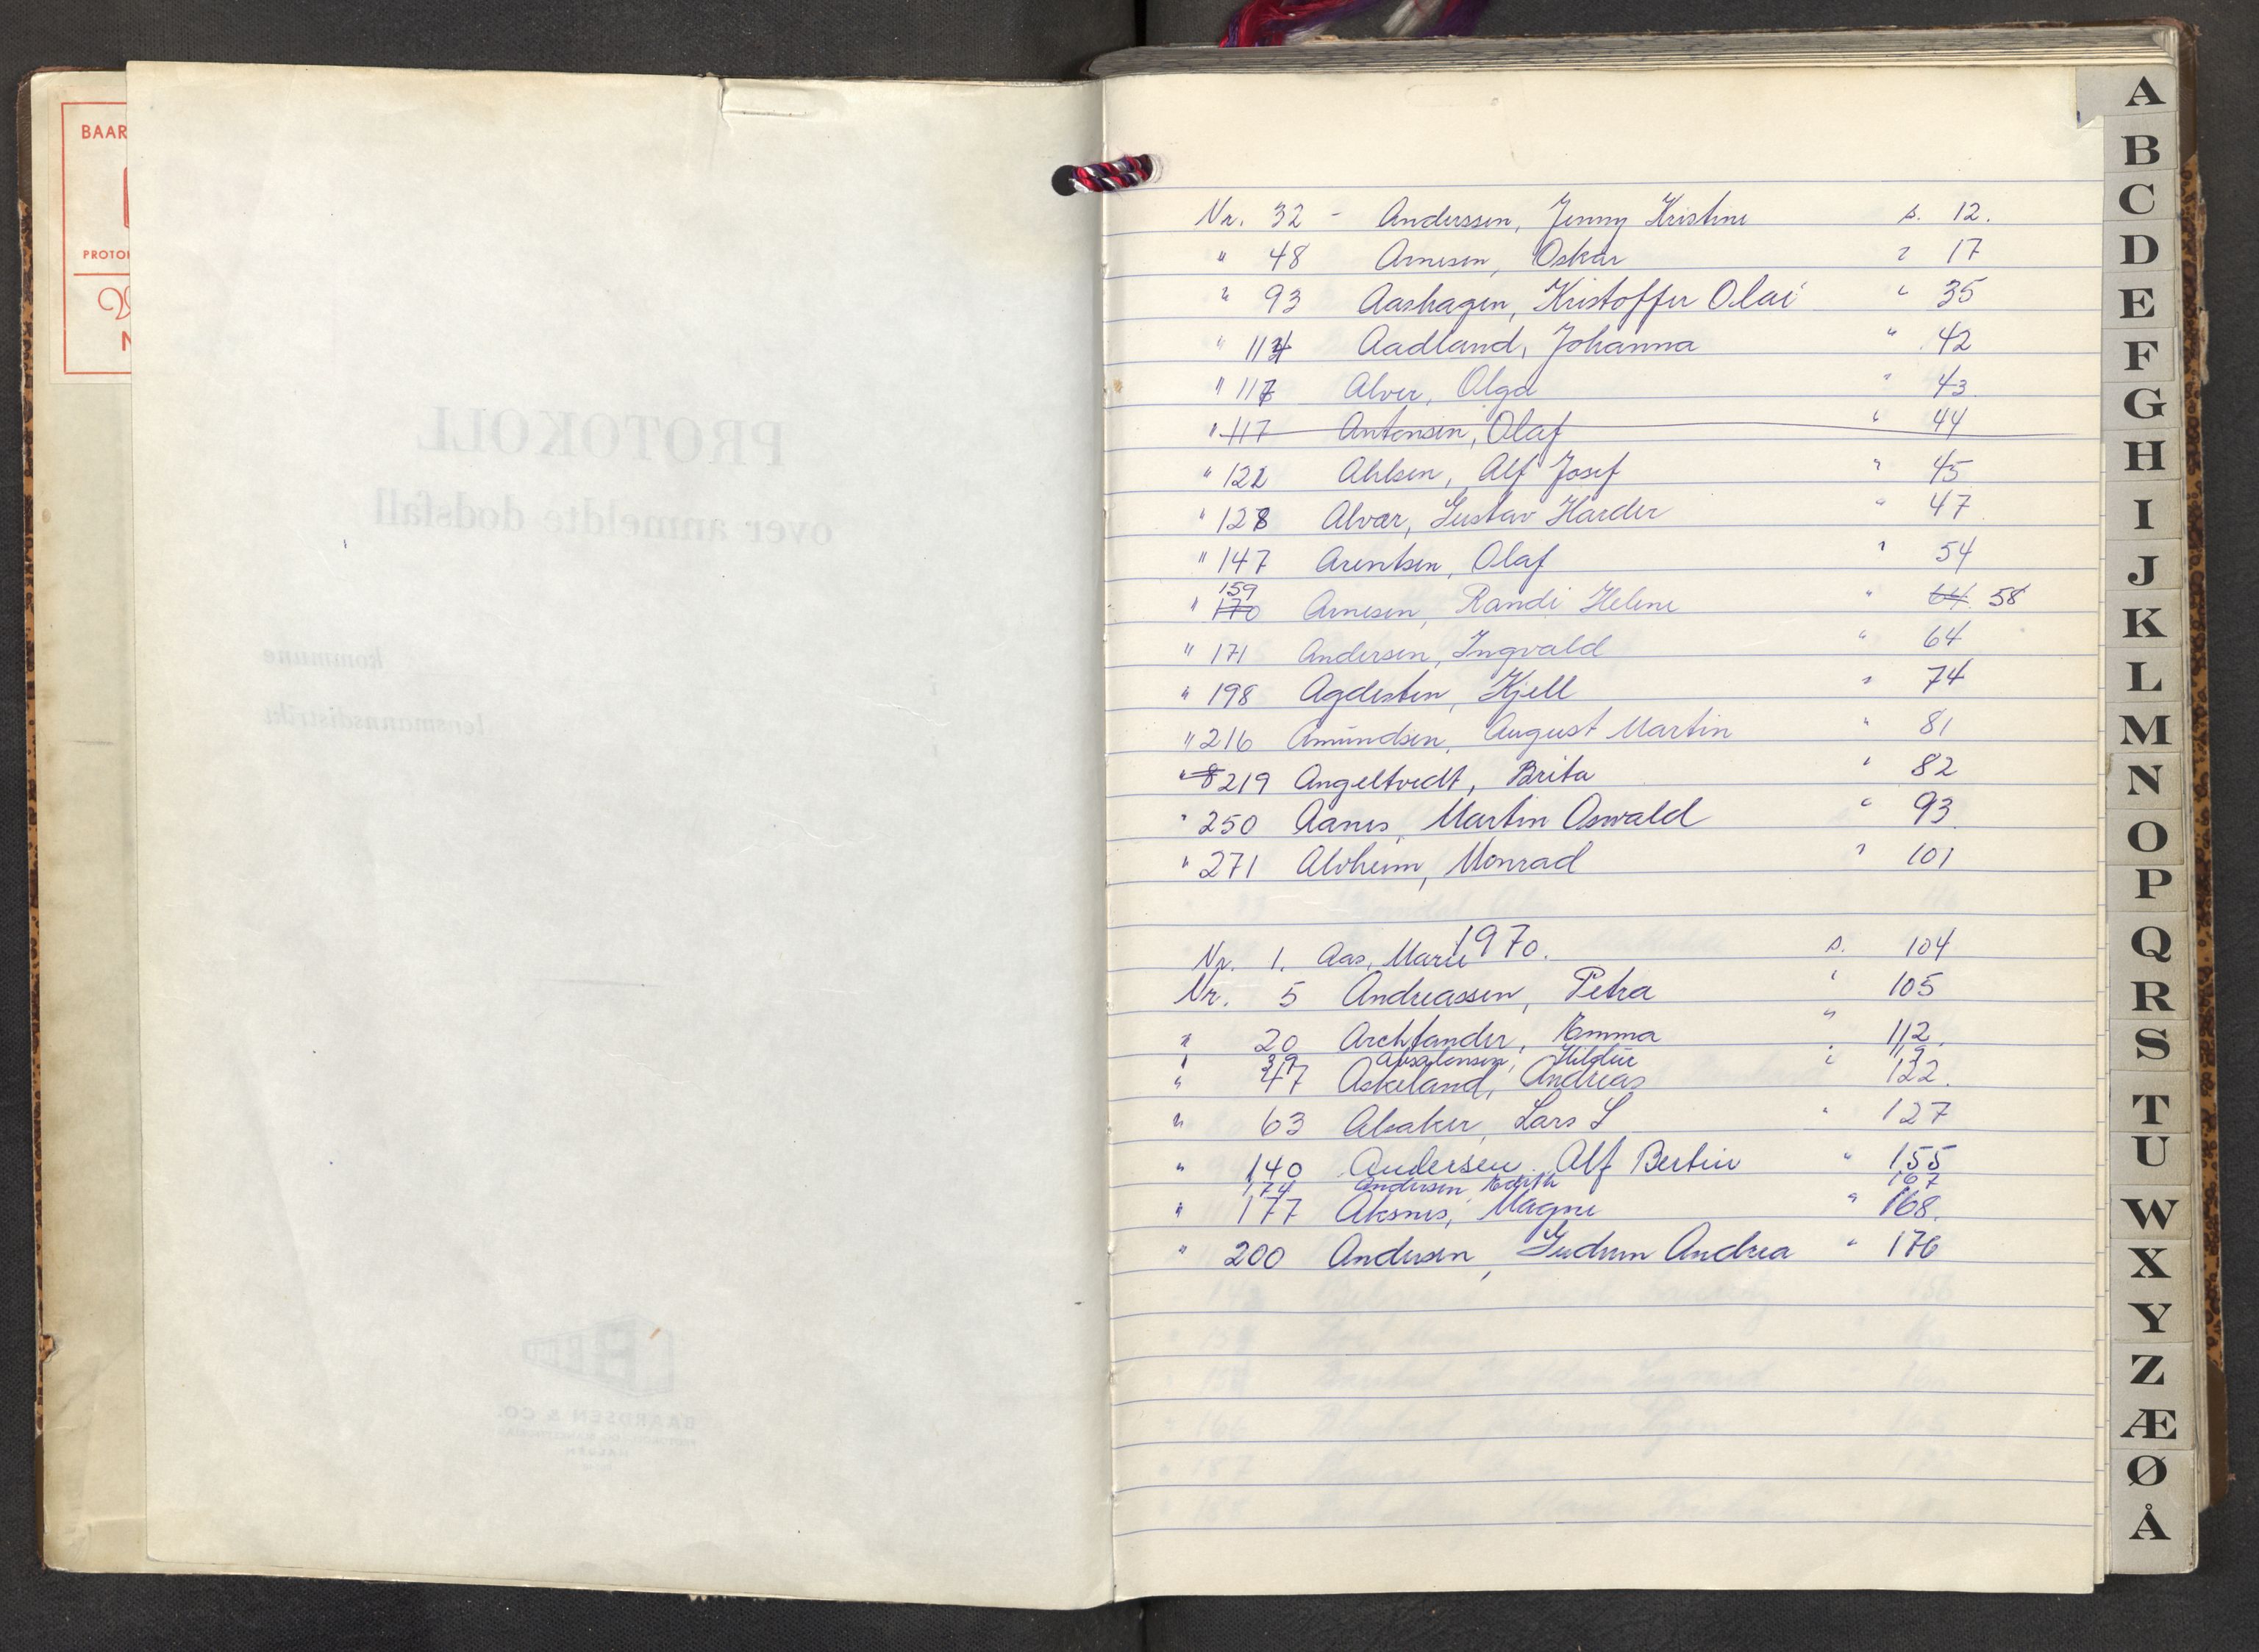 BAAR
PROTO
PROTOKOLL
over anmeldte dødsfall
i kommune
i lensmannsdistrikt
BAARDSEN & CO.
Nr. 32 - Anderssen, Jenny Kristine s. 12.
" 48 Arnesen, Oskar " 17
" 93 Aashagen, Kristoffer Olai " 35
" 114 Aadland, Johanna " 42
" 117 Alver, Olga " 43
" 117 Antonsen, Olaf " 44
" 122 Ahlsen, Alf Josef " 45
" 128 Alvær, Gustav Harder " 47
" 147 Arentsen, Olaf " 54
159
" 170 Arnesen, Randi Helene " 64 58
" 171 Andersen, Ingvald " 64
" 198 Agdesten, Kjell " 74
" 216 Amundsen, August Martin " 81
" 8 219 Angeltvedt, Brita " 82
" 250 Aanes, Martin Oswald " 93
" 271 Alvheim, Monrad " 101
1970.
Nr. 1. Aas, Marie s. 104
Nr. 5 Andreassen, Petra " 105
" 20 Archtander, Emma " 112.
" 39 Absalonsen, Hildur " 119
" 47 Askeland, Andreas 122.
" 63 Alsaker, Lars S " 127
" 140 Andersen Alf Bertin " 155
174 Andersen, Edith 167
" 177 Aksnes, Magne " 168.
" 200 Andersen, Gudrun Andrea " 176
A
B
C
D
E
F
G
H
I
J
K
L
M
N
O
P
Q
R
S
T
U
W
X
Y
Z
Æ
Ø
Å